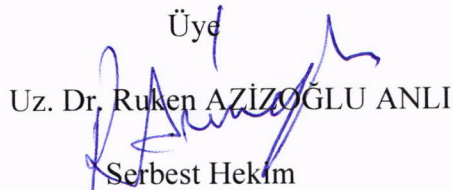 Üye
Uz. Dr. Ruken AZİZOĞLU ANLI
Serbest Hekim